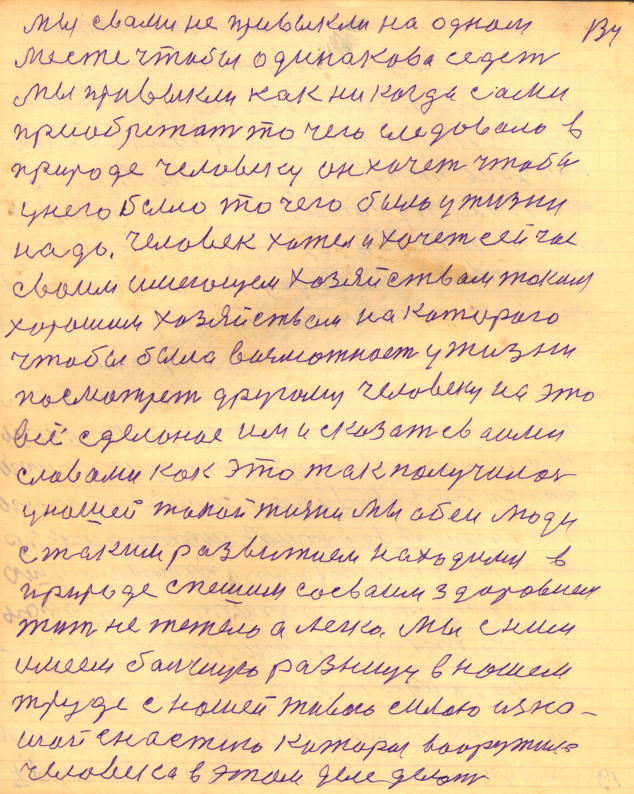 мы свами не привыкли на одном 134
месте чтобы одинакова седет
мы привыкли как никогда сами
приобретат то чего следовало в
природе человеку он хочет чтобы
унего было то чего было ужизни
надо. Человек хотел и хочет сейчас
своим имеющем хозяйствам таким
хорошим хозяйствам на каторого
чтобы была возможност ужизни
посмотрет другому человеку на это
всё сделоное им и сказат сваими
словами как это так получилос
унашей такой жизни мы обеи люди
стаким развитием находими в
природе спешим сосваим здоровием
жит не тежело а легко. Мы сним
имеем балшую разницу в нашем
труде снашей живою силою изна-
шой снастию каторы вооружил
человека в этом деле делат